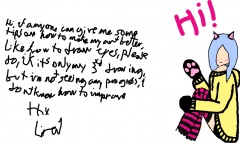 Hi, if anyone can give me some
tips on how to make my art better,
Like how to draw eyes, please
do, it is only my 3rd drawing,
but im not seeing any progress, I
don't know how to improve
Thx
Hi!